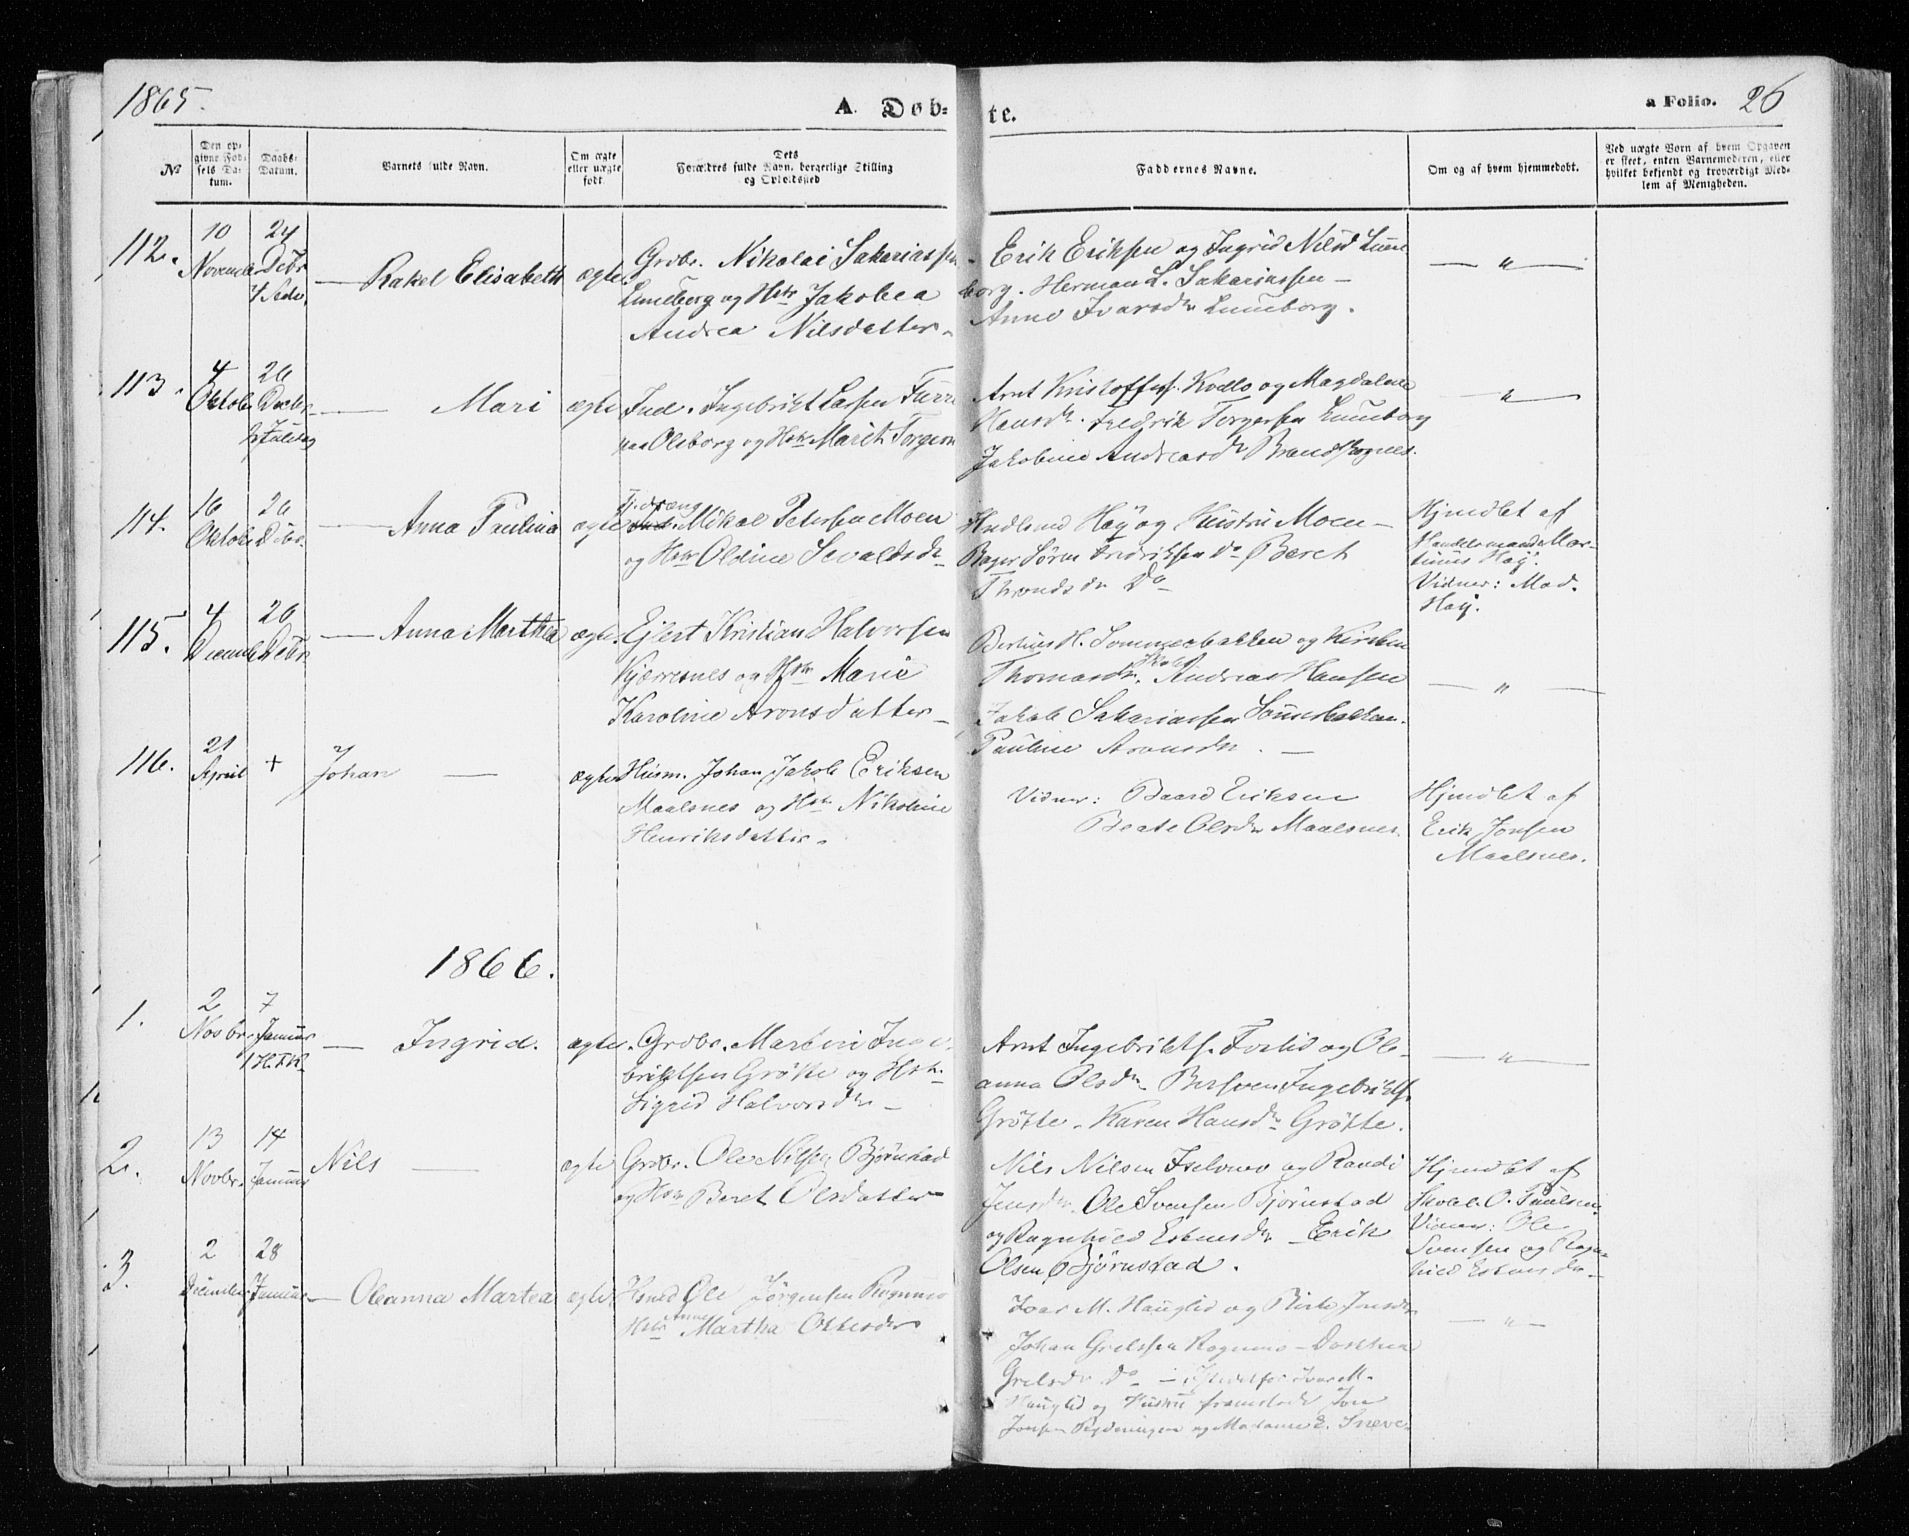 1865.
A. Døb-
te.
a Folio. 26
No
Den op-
givne Fød-
sels Da-
tum.
Daabs-
Datum.
Barnets fulde Navn.
Om ægte
eller uægte
født.
Dets
Forældres fulde Navn, borgerlige Stilling
og Opholdssted
Faddernes Navne.
Om og af hvem hjemmedøbt.
Ved uægte Børn af hvem Opgaven
er skeet, enten Barnemoderen, eller
hvilket bekjendt og troværdigt Med-
lem af Menigheden.
112.
10
24
Debr
Rakel Elisabeth
ægte
Grdbr. Nikolai Sakariassen
Luneborg og Hstr Jakobea
Andrea Nilsdatter
Erik Eriksen og Ingrid Nilsd Lune
borg. Herman L. Sakariassen
Anne Ivarsdr Luneborg.
113.
4
Oktober
26
Decbr
2 Juledag
Mari
ægte
Ind. Ingebrikt Larsen
Olsborg og Hstr Marit
Arnt Kristoffers. Kvello og Magdalene
Hansdr. Fredrik Torgersen Luneborg
Jakobine Andreasdr
114.
16
Oktober
26
Debr
Anna Paulina
ægte
Mikal Petersen Moen
og Hstr Oldine Sevaldsdr
Handlsmd Høy og Hustru Moen
Bager Søren Fredriksen Do Beret
Throndsdr Do
Hjmdbt af
Handelsmand Mar-
tinus Høy.
Vidner: Mad.
Høy.
115.
4
Decemb
26
Debr
Anna Marthea
ægte
Ejlert Kristian Halvorsen
Kjærresnes og Hstr Marie
Karoline Aronsdatter
Bertius H. Sommerbakken og Kirsten
Thomasdr. Andreas Hansen
Jakob Sakariassen
Pauline Aronsdr.
116.
21
April
+
Johan
ægte
Husm. Johan Jakob Eriksen
Maalsnes og Hstr Nikoline
Henriksdatter.
Vidner: Baard Eriksen
Beate Olsdr Maalsnes.
Hjmdbt af
Erik Jonsen
Maalsnes.
1866.
1.
2
Novbr
7
Januar
Ingrid.
ægte
Grdbr. Martin Inge-
briktsen Grøtte og Hstr
Sigrid Halvorsdr
Arnt Ingebriktsen Foslid og Ole-
anna Olsdr Bersven Ingebrikts.
Grøtte. Karen Hansdr Grøtte.
2.
13
Novbr.
14
Januar
Nils
ægte
Grdbr. Ole Nilsen Bjørnstad
og Hstr Beret Olsdatter
Nils Nilsen og Randi
Jensdr. Ole Svensen Bjørnstad
og Ragnhild Estensdr. Erik
Olsen Bjørnstad.
Hjmdbt af
Skoll. O. Paulsen
Vidner: Ole
Svensen og Ragn-
hild Estensdr
3.
2
December
28
Januar
Oleanna Martea
ægte
Ole Jørgensen Rognmo
Hstr Anne Martha Ottesdr
Ivar M. Hauglid og Jonsdr
Johan Grelssen Rognmo - Dorthea
Grelsdr Do - istedetfor Ivar M.
Hauglid og Hustru fremstod Jon
Jonsen og Madame E. Sneve